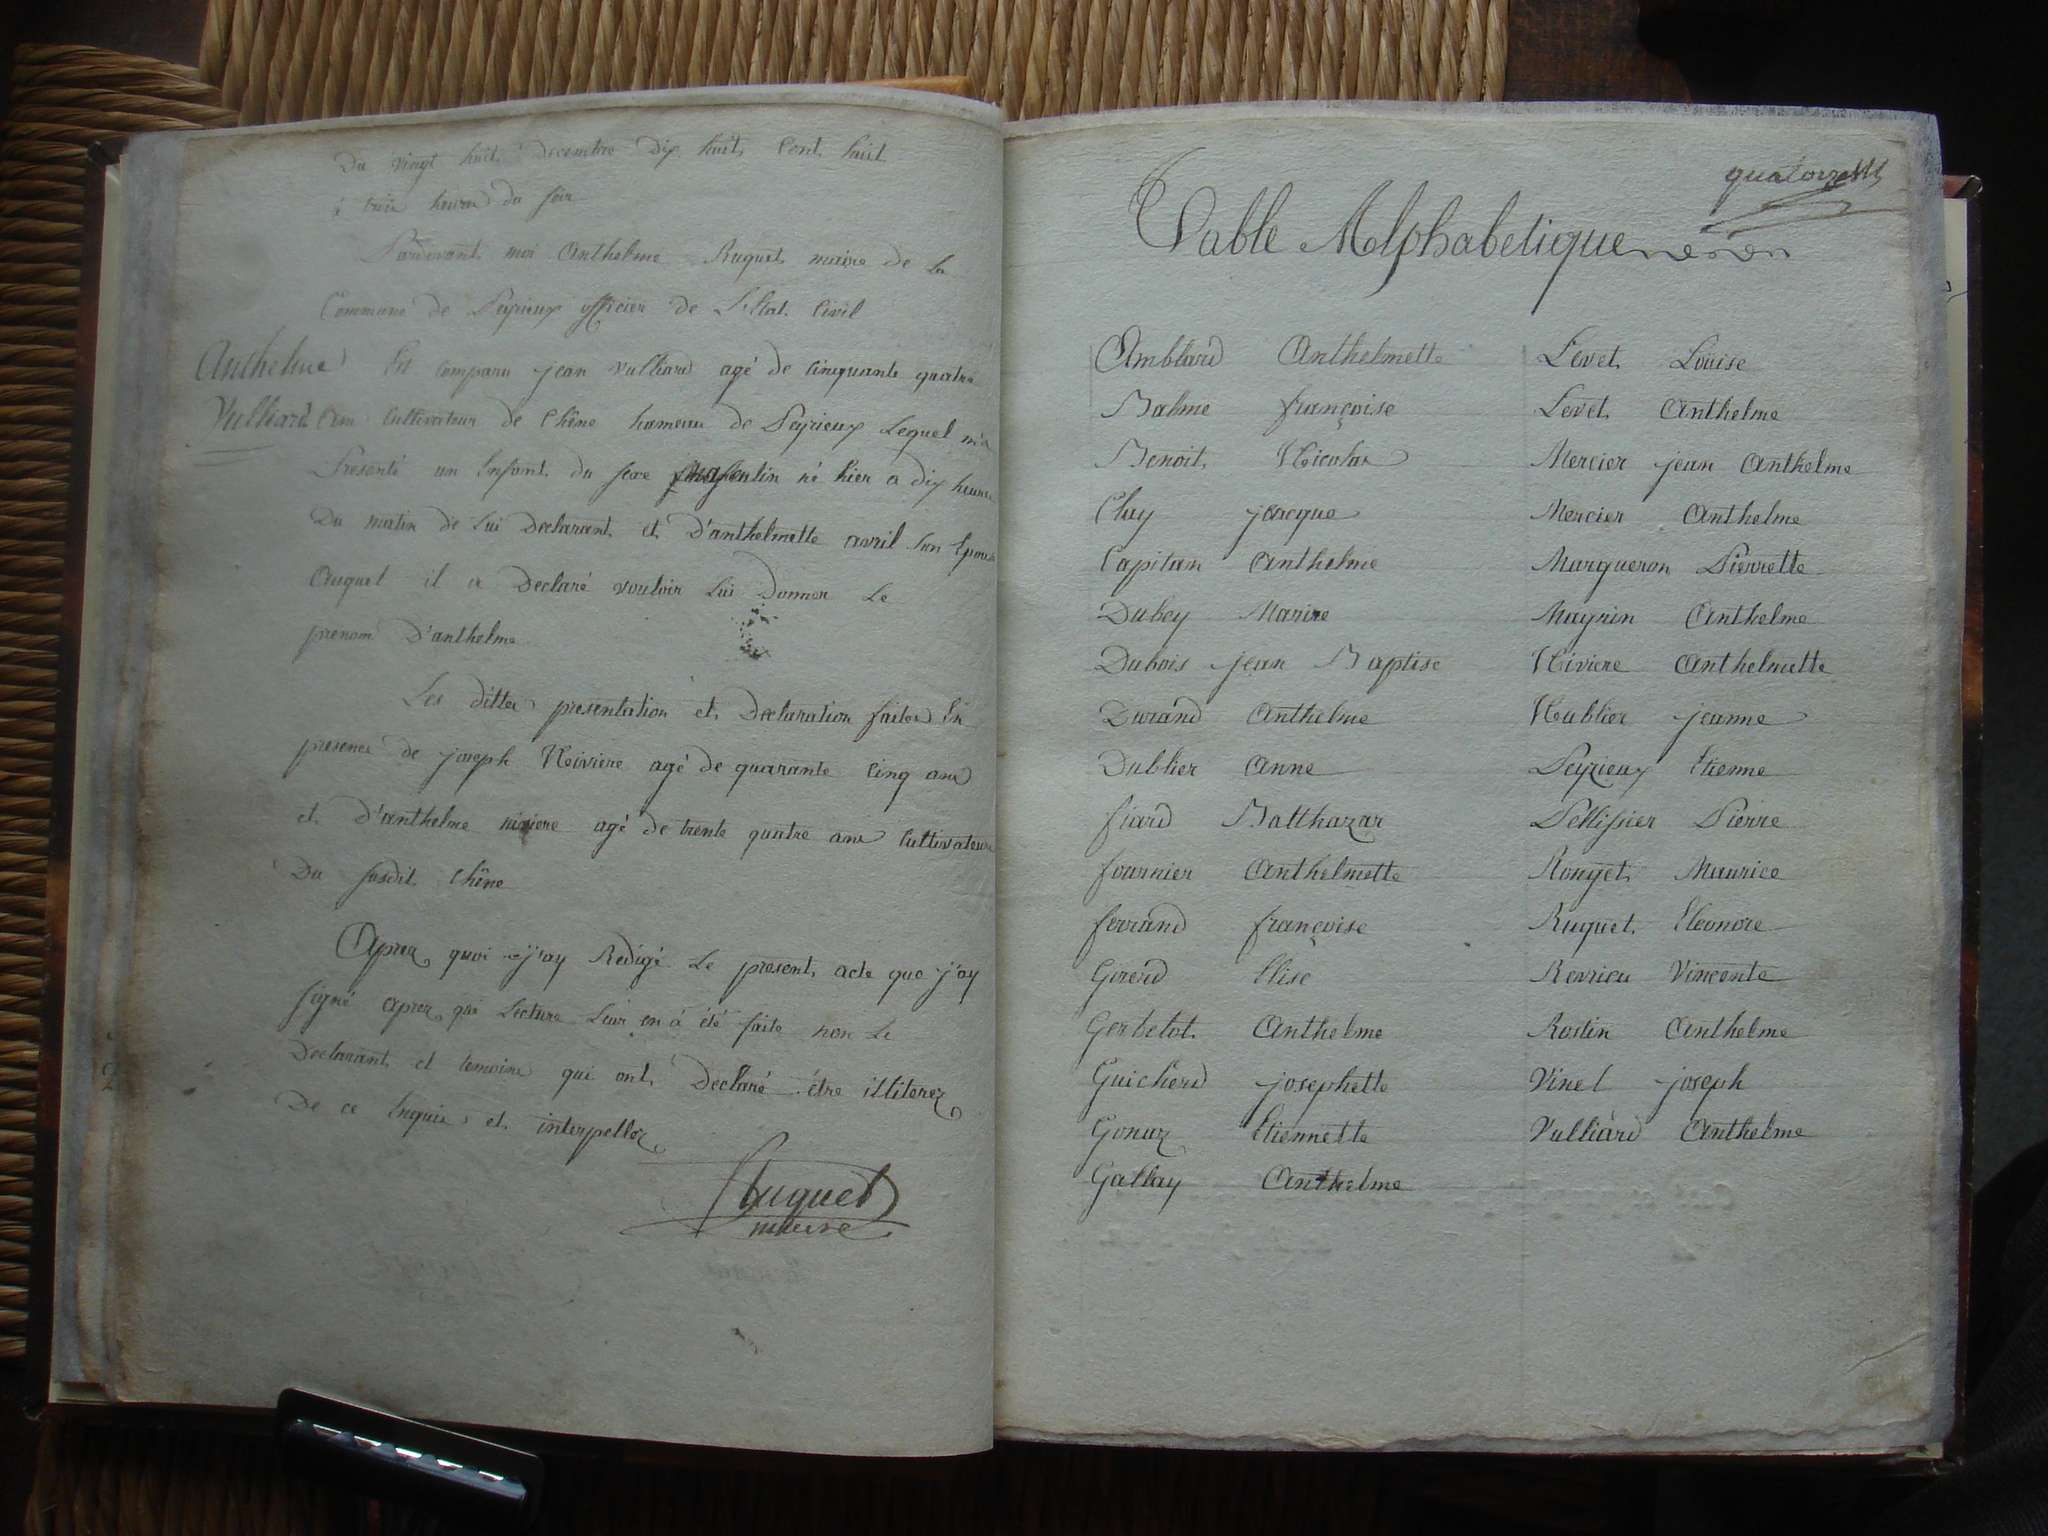 Du vingt huit Decembre Dix huit Cent huit
à trois heures du soir
Pardevant moi Anthelme Ruquet maire de la
Commune de Peyrieux officier de L'Etat Civil
Anthelme
Vulliard
Est comparu jean vulliard agé de Cinquante quatre
ans Cultivateur de Chêne hameau de Peyrieux Lequel m'a
Presenté un Enfant du sexe masculin né hier a dix heures
Du matin de Lui Declarant et D'anthelmette avril son Epouse
Auquel il a Declaré vouloir Lui Donner Le
prenom D'anthelme
Les dittes presentation et Declaration faites En
presence de joseph Niviere agé de quarante Cinq ans
et D'anthelme niviere agé de trente quatre ans Cultivateurs
Du susdit Chêne
Aprez quoi j'ay Redigé Le present acte que j'ay
signé aprez que Lecture Leur en a été faite non Le
Declarant et temoins qui ont Declaré être illiterez
De ce Enquis et interpellez
Ruquet
maire
quatorze
Table Alphabetique
Amblard Anthelmette
Balme françoise
Benoit Nicolas
Cluy jacque
Capitan Anthelme
Dubey Marie
Dubois jean Baptise
Durand Anthelme
Dublier Anne
fiard Balthazar
fournier Anthelmette
ferrand françoise
Girerd Elise
Gerbelot Anthelme
Guicherd josephette
Gonaz Etiennette
Gallay Anthelme
Levet Louise
Levet Anthelme
Mercier jean Anthelme
Mercier Anthelme
Margueron Pierrette
Maynin Anthelme
Niviere Anthelmette
Nublier jeanne
Peyzieux Etienne
Pellissier Pierre
Rouyet Maurice
Ruquet Eleonore
Revrieu Vincente
Rostin Anthelme
Vinel joseph
Vulliard Anthelme